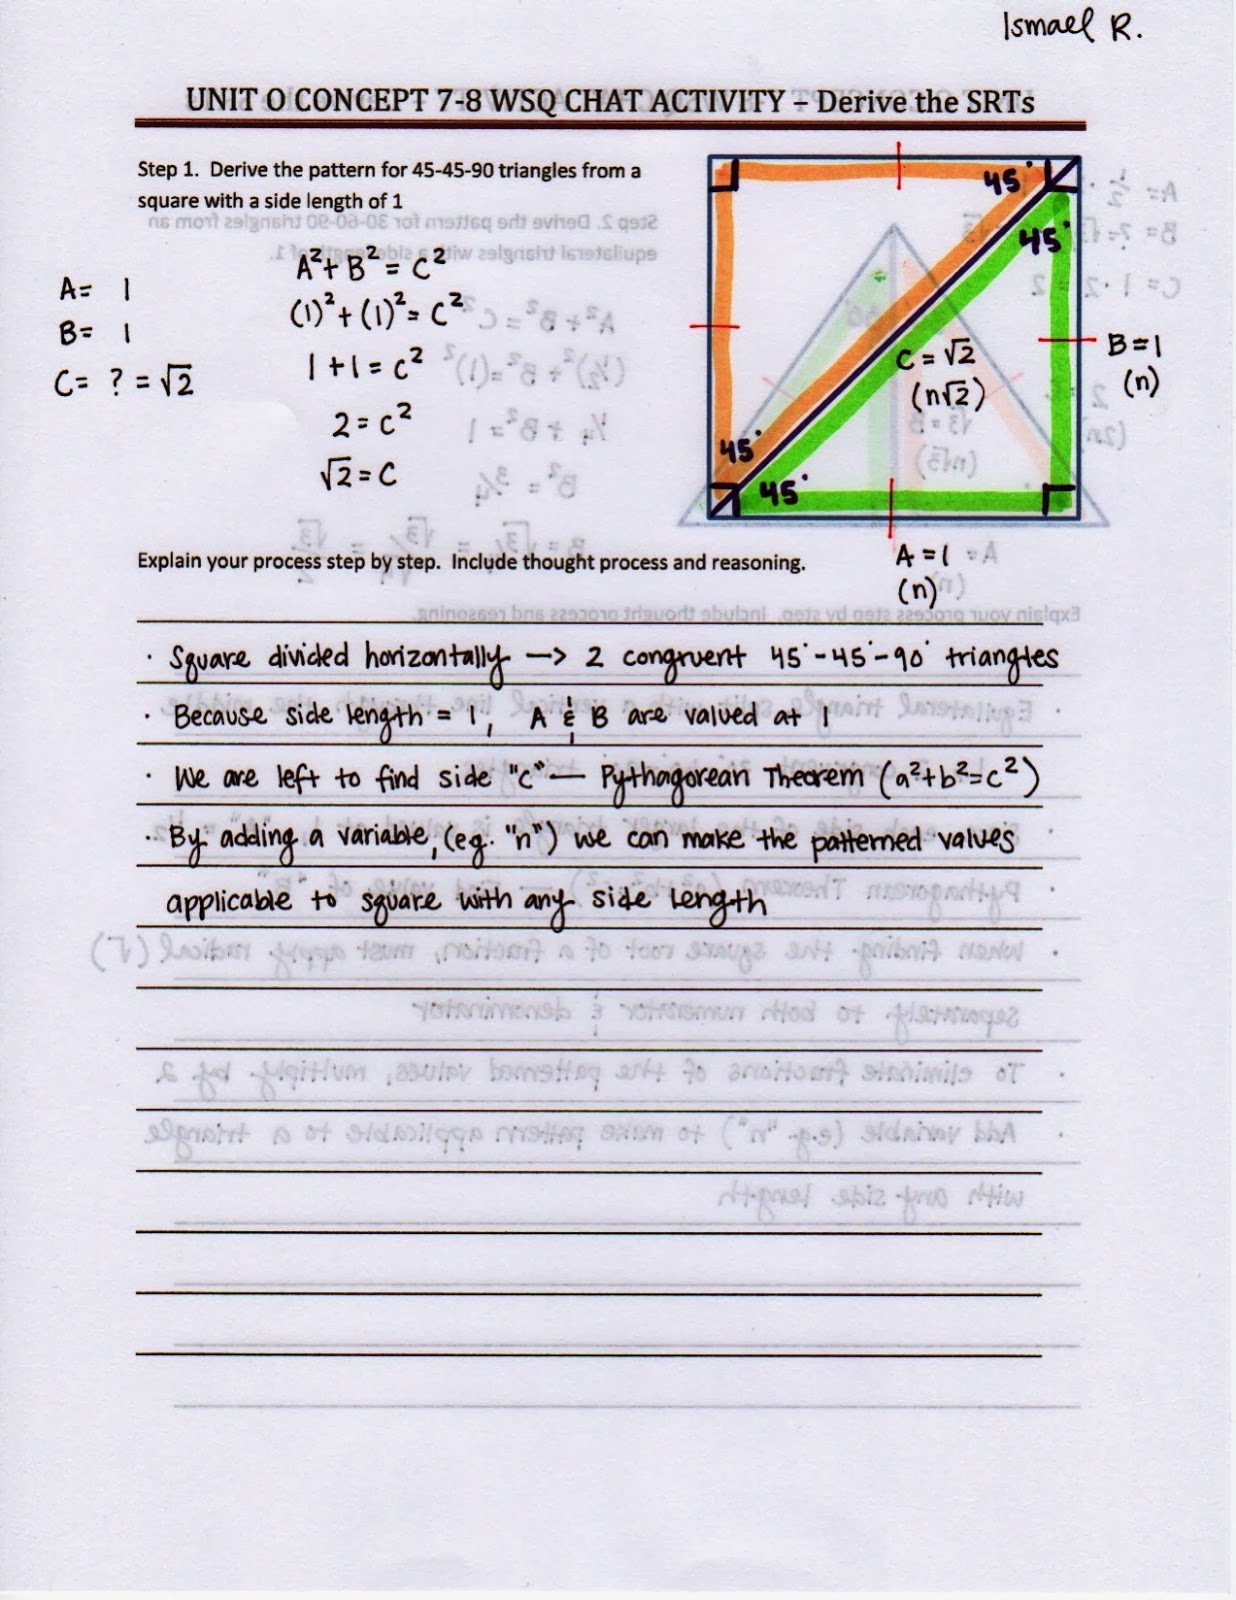 Ismael R.
UNIT O CONCEPT 7-8 WSQ CHAT ACTIVITY – Derive the SRTs
Step 1. Derive the pattern for 45-45-90 triangles from a
square with a side length of 1
A= 1
B= 1
C= ? = √2
A²+ B² = C²
(1)²+(1)²= C²
1+1= c²
2= c²
√2= C
45°
45°
45°
45°
C = √2
(n√2)
B=1
(n)
A=1
(n)
Explain your process step by step. Include thought process and reasoning.
· Square divided horizontally —> 2 congruent 45°-45°-90° triangles
· Because side length = 1, A & B are valued at 1
· We are left to find side "c" — Pythagorean Theorem (a²+b²=c²)
· By adding a variable, (eg. "n") we can make the patterned values
applicable to square with any side length